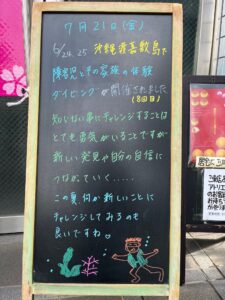 7月21日(金)
6/24.25 沖縄 渡嘉敷島で
障害児とその家族の体験
ダイビングが開催されました
(8回目)
知らない事にチャレンジすることは
とても勇気がいることですが
新しい発見や自分の自信に
つながっていく.....
この夏、何か新しいことに
チャレンジしてみるのも
良いですね